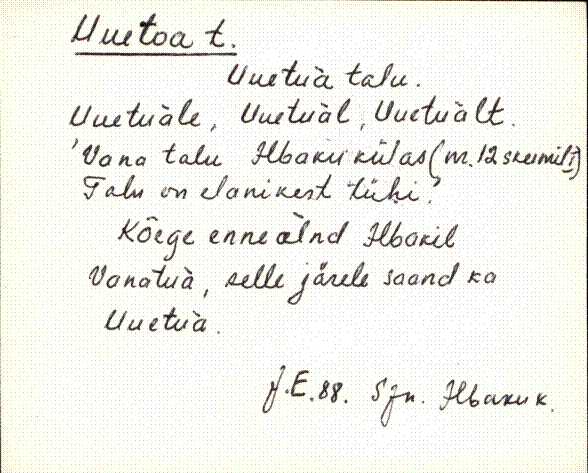 Uuetoa t.
Uuetuà talu.
Uuetuàle, Uuetuàl, Uuetuàlt.
'Vana talu Ilbaku külas (m. 12 skeemil I)
Talu on elanikest tühi.'
Kõege enne àlnd Ilbakil
Vanatuà, selle järele saand ka
Uuetuà.
J.E. 88. Sjn. Ilbaku k.